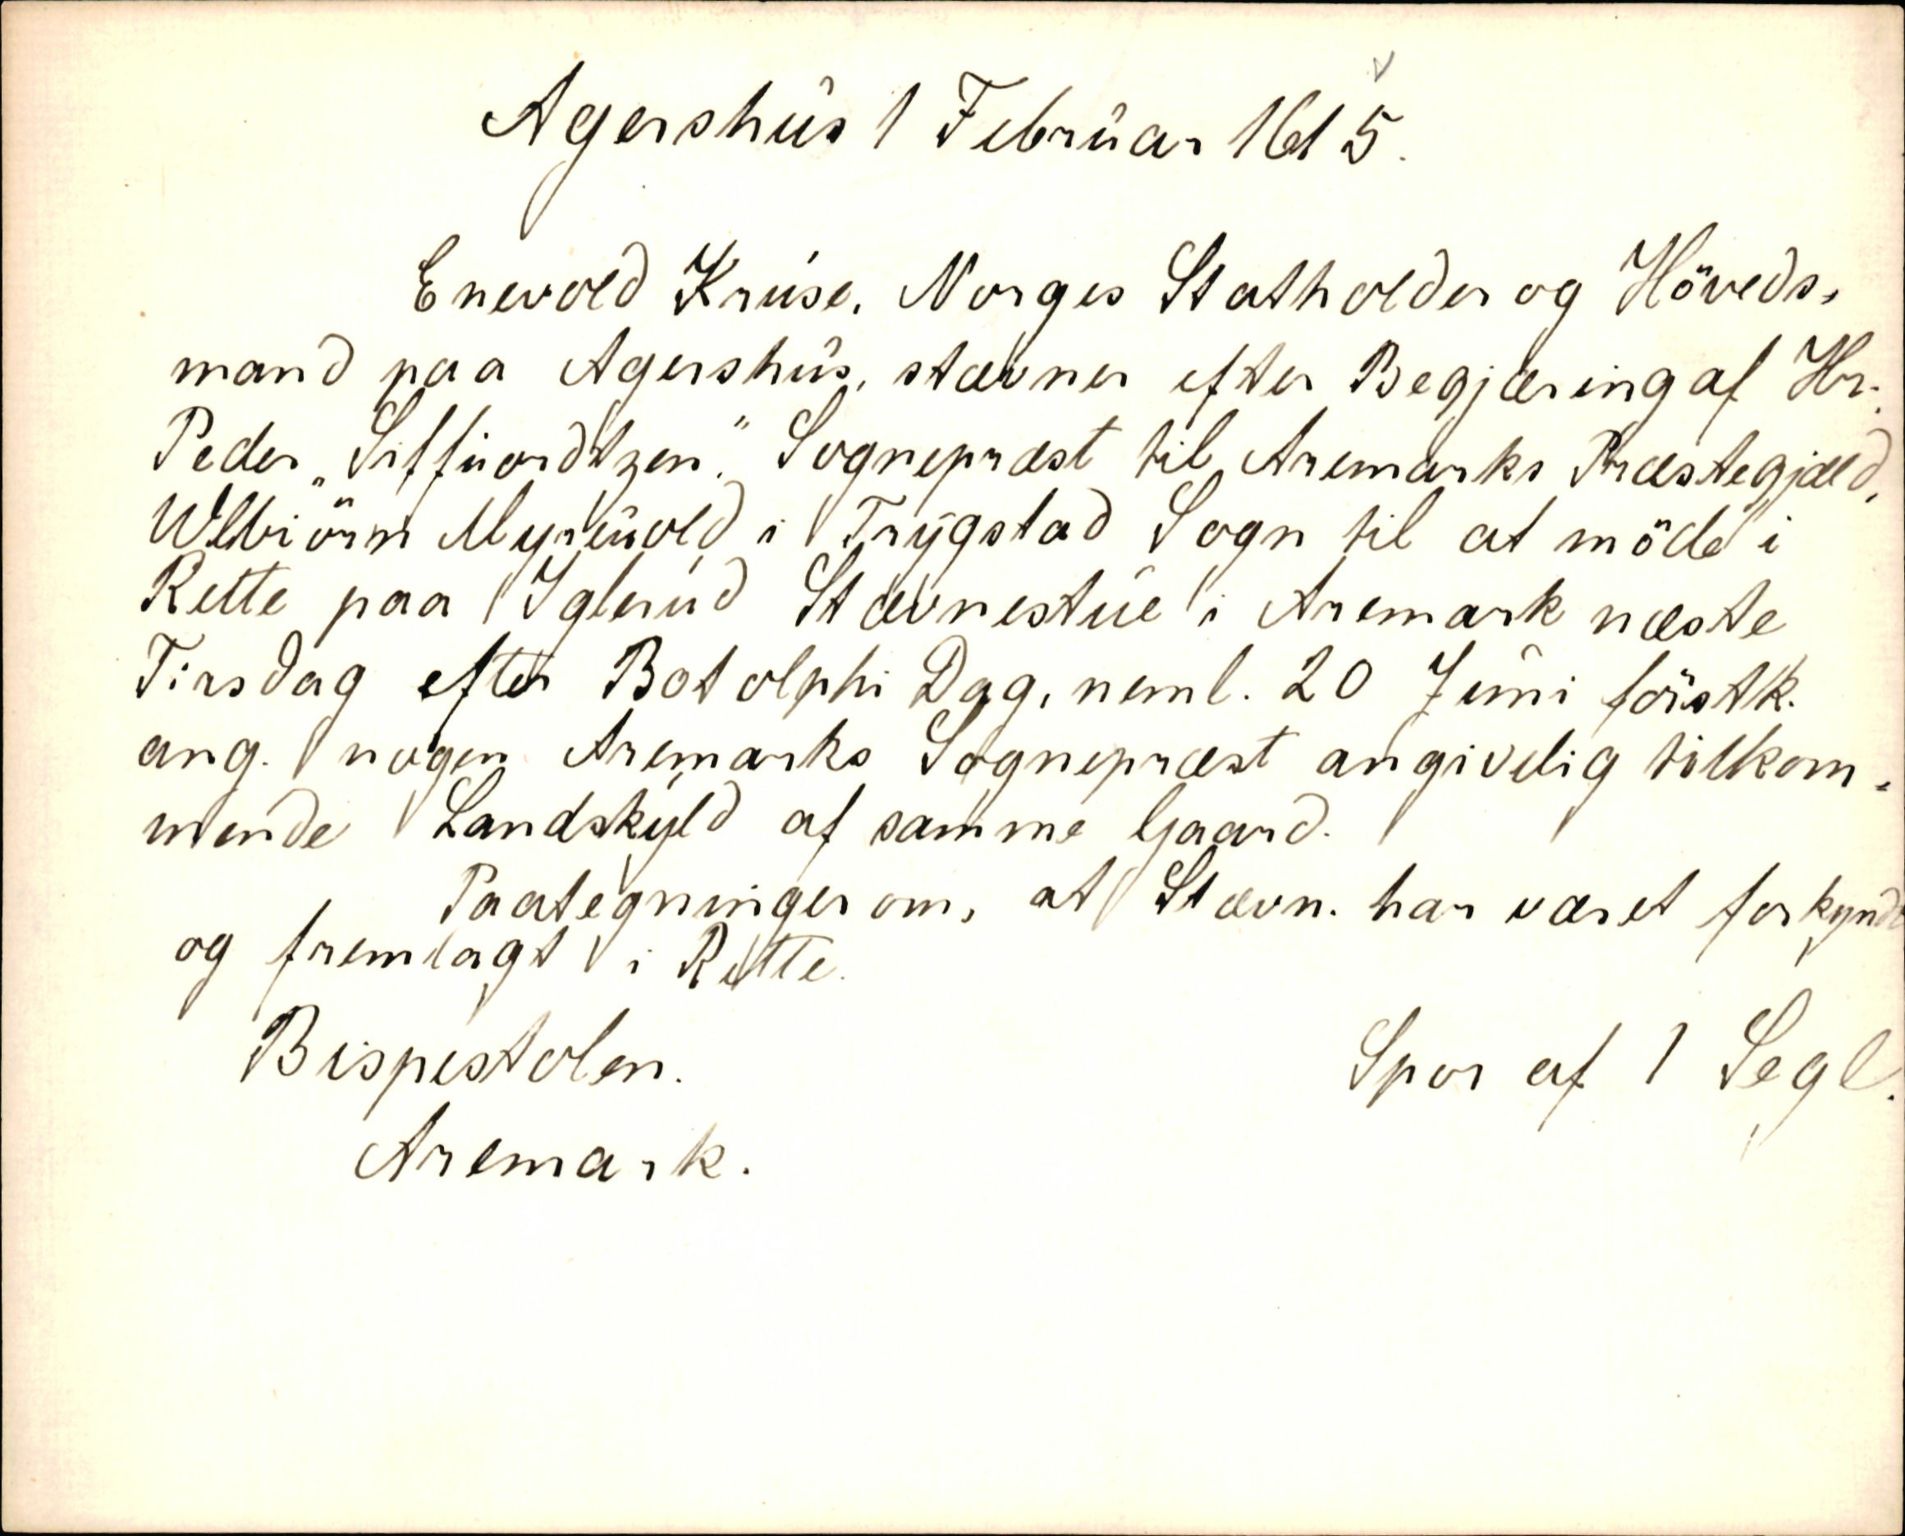 Agershus 1 Februar 1615.
Enevold Kruse, Norges Statholder og Höveds-
mand paa Agershus, stævner efter Begjæring af Hr.
Peder „Siffuordtzen", Sognepræst til Aremarks Præstegjæld,
Wlbiörn Myruold i Trygstad Sogn til at möde i
Rette paa Iglerud Stævnestue i Aremark næste
Tirsdag efter Botolphi Dag, neml. 20 Juni förstk.
ang. nogen Aremarks Sognepræst angivelig tilkom-
mende Landskyld af samme Gaard.
Paategninger om, at Stævn. har været forkyndt
og fremlagt i Rette.
Bispestolen.
Spor af 1 Segl.
Aremark.